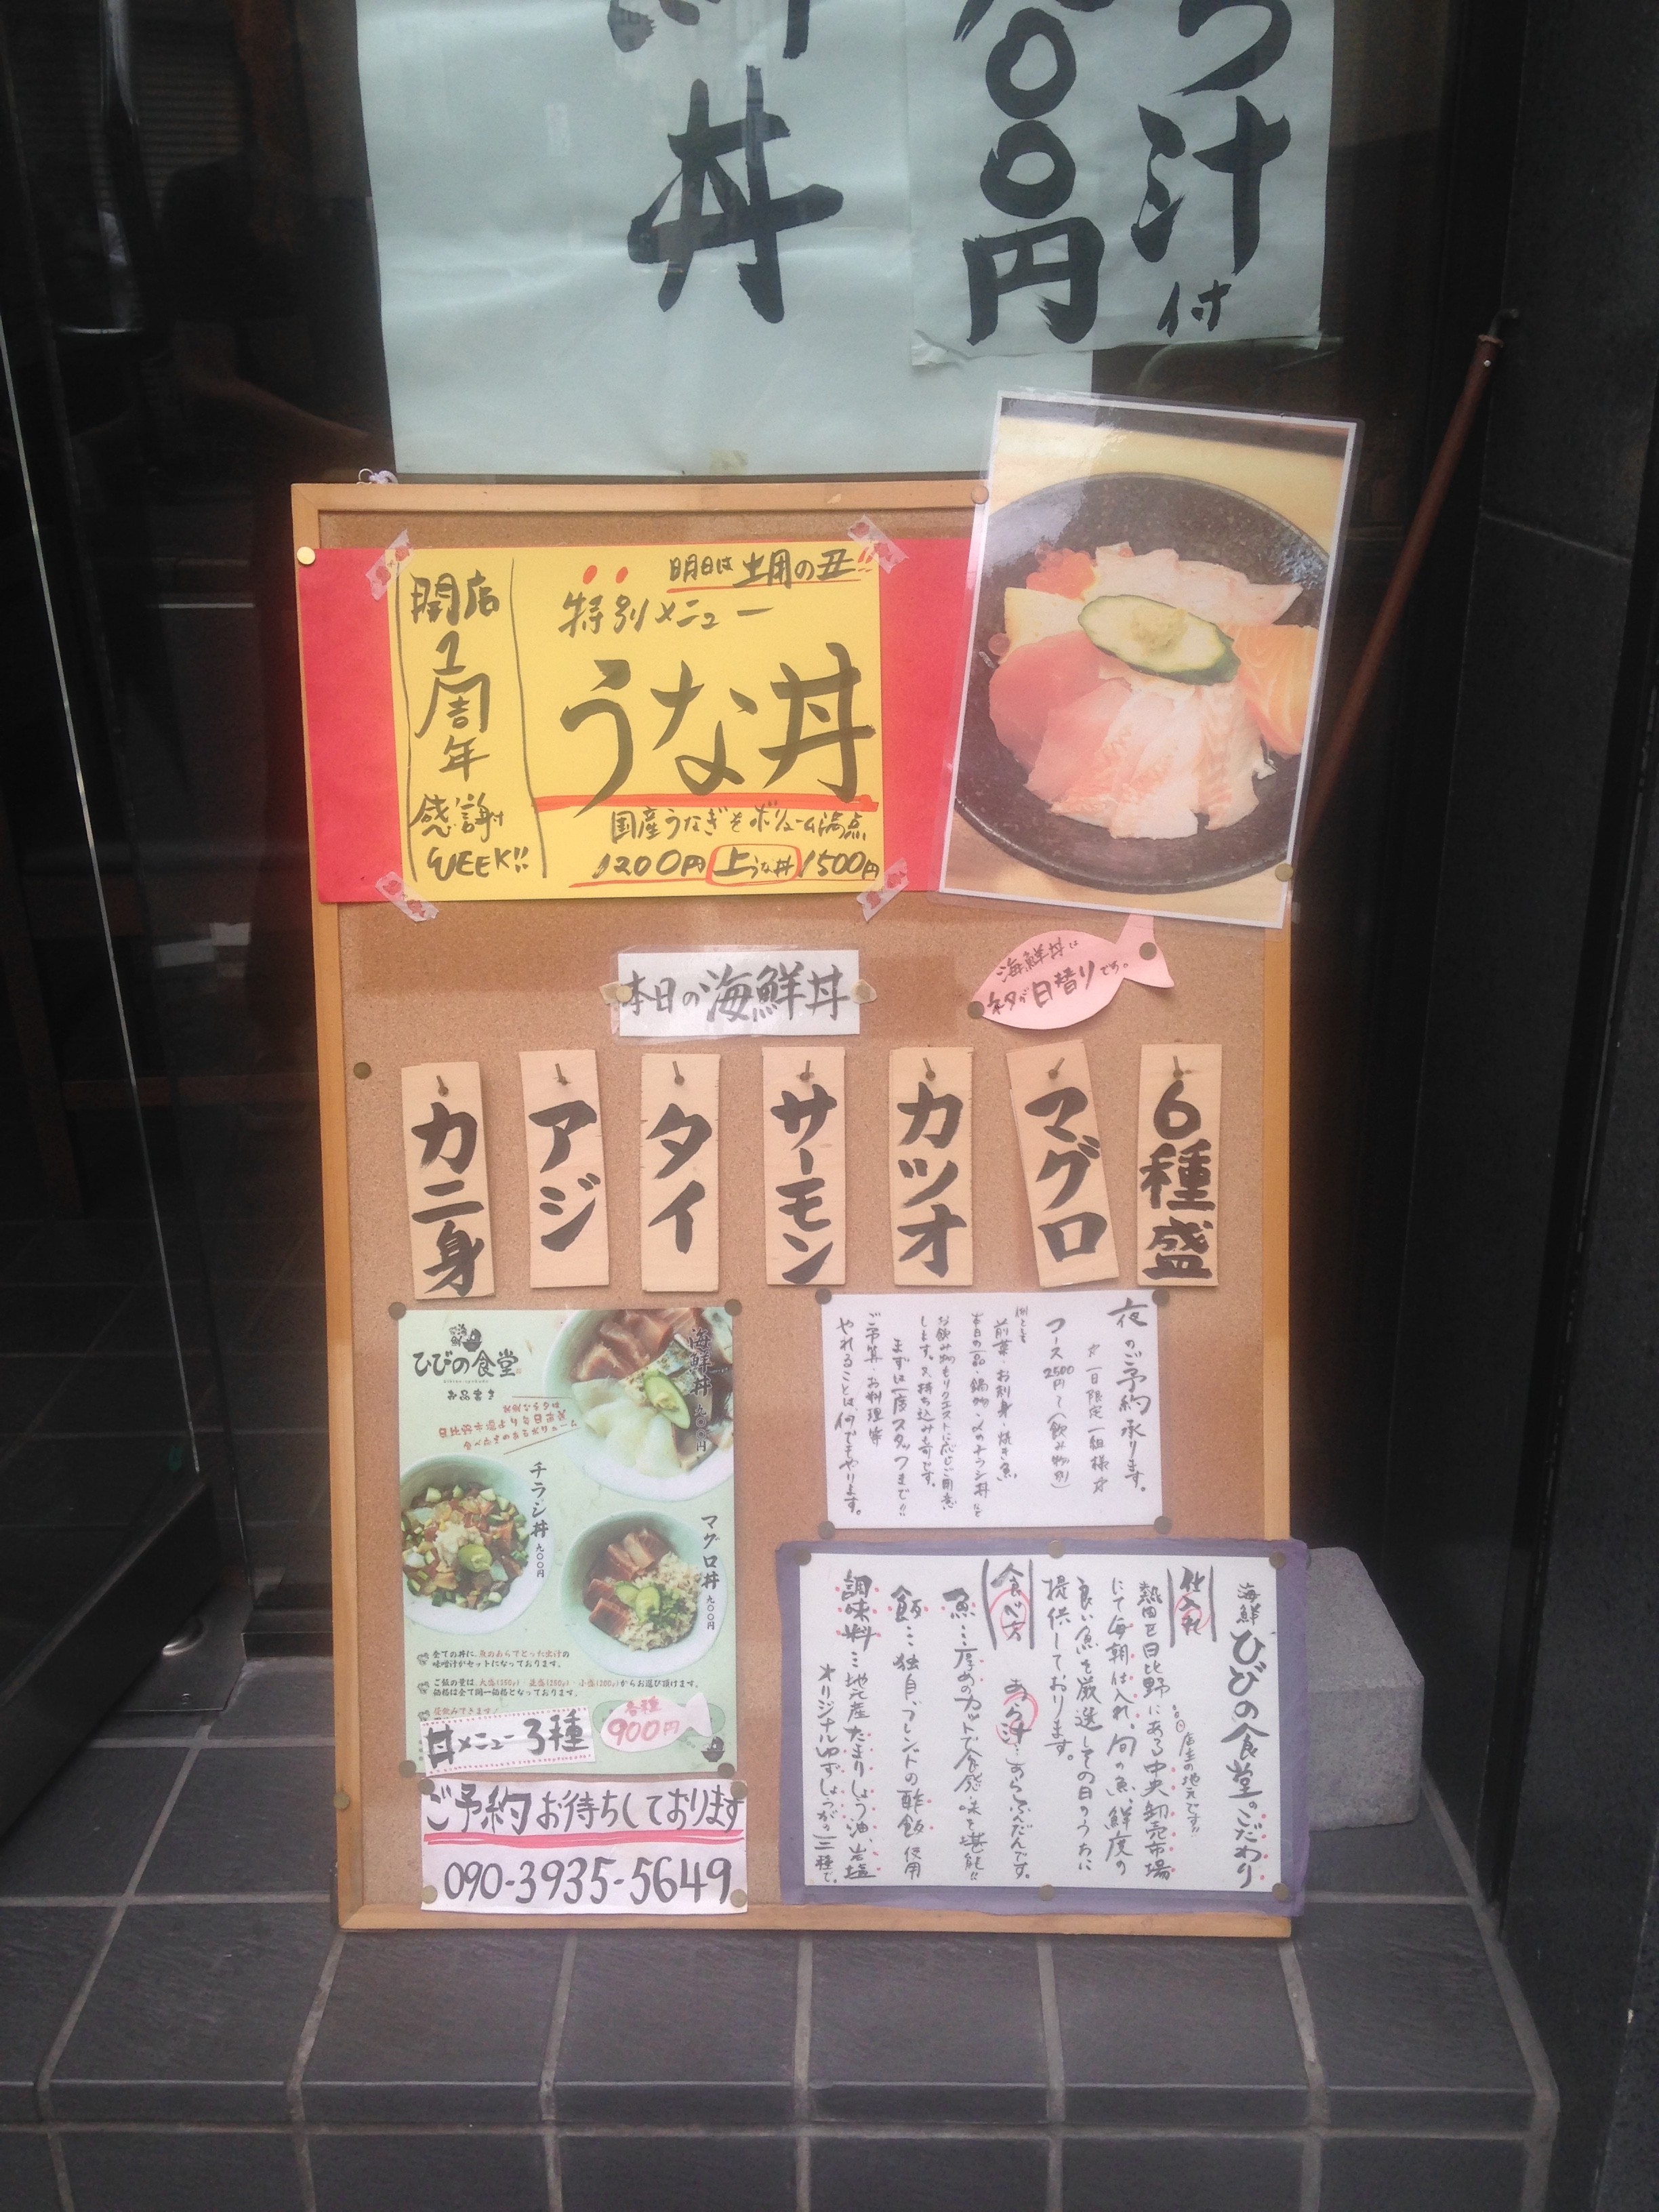 汁付
00円
丼
明日は土用の丑!!
特別メニュー
うな丼
国産うなぎでボリューム満点
1200円 上うな丼 1500円
開店
1周年
感謝
WEEK!!
本日の海鮮丼
海鮮丼は
ネタが日替りです。
6種盛
マグロ
カツオ
サーモン
タイ
アジ
カニ身
ひびの食堂
お品書き
海鮮丼 九〇〇円
チラシ丼 九〇〇円
マグロ丼 九〇〇円
全ての丼に、魚のあらでとった出汁の
味噌汁がセットになっております。
ご飯の量は、大盛(350g)・正盛(250g)・小盛(200g)からお選び頂けます。
価格は全て同一価格となっております。
丼メニュー3種
各種
900円
ご予約お待ちしております
090-3935-5649
夜のご予約承ります。
☆一日限定一組様☆
コース2500円〜(飲み物別)
例として
前菜・お刺身・焼き魚
本日の一品・鍋物・〆のチラシ丼など
お飲み物もリクエストに応じご用意
します。又持ち込み可です。
まずは一度スタッフまで!!
ご予算・お料理等
やれることは、何でもやります。
海鮮ひびの食堂のこだわり
仕入れ
店主の地元です!!
熱田区日比野にある中央卸売市場
にて毎朝仕入れ、旬の魚、鮮度の
良い魚を厳選してその日のうちに
提供しております。
食べ方
あら汁…おかわりぶんだんです。
魚…厚めのカットで食感・味を堪能!!
飯…独自ブレンドの酢飯使用
調味料…地元産たまりしょう油、岩塩
オリジナルゆずしょうがの三種で。